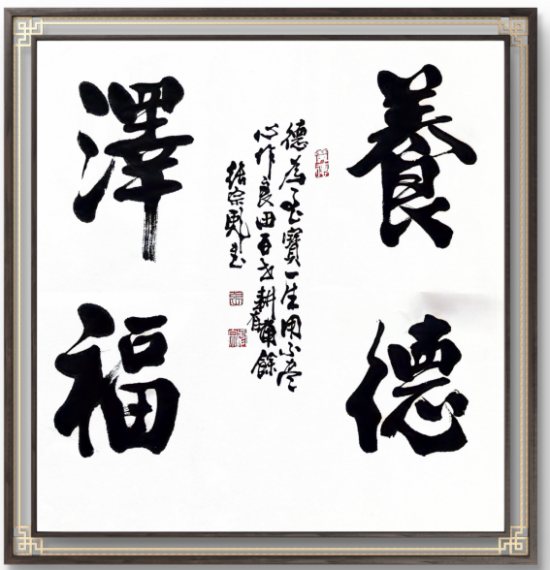 養德
德為至寶一生用不盡
心作良田百世耕有餘
澤福